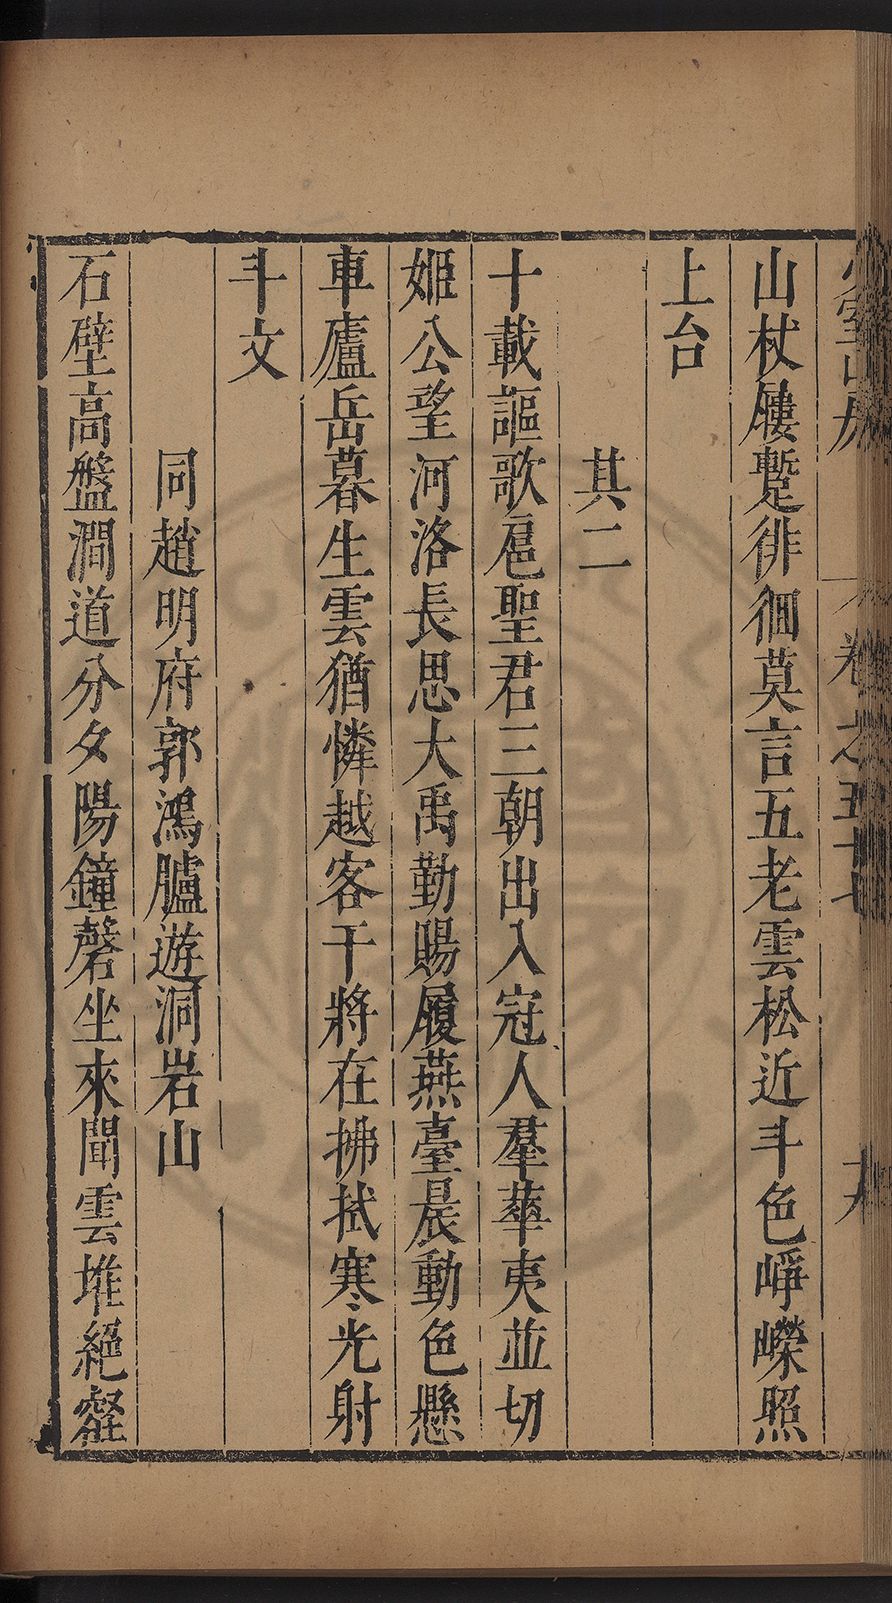 少室山房 卷之五十七 十九
山杖屨蹔徘徊莫言五老雲松近斗色崢嶸照
上台
其二
十載謳歌扈聖君三朝出入冠人羣華夷並切
姬公望河洛長思大禹勤賜履燕臺晨動色懸
車廬岳暮生雲猶憐越客干將在拂拭寒光射
斗文
同趙明府郭鴻臚遊洞岩山
石壁高盤澗道分夕陽鐘磬坐來聞雲堆絕壑